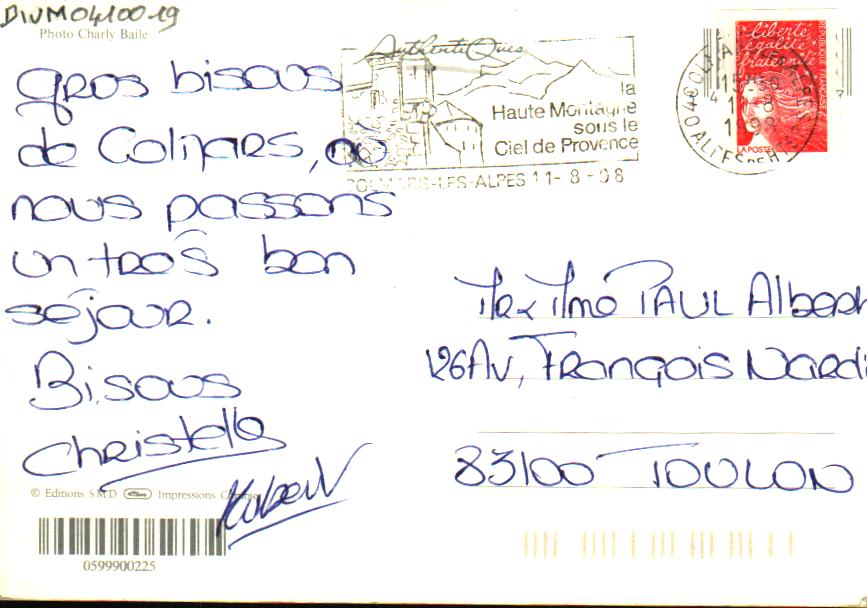 DIVM0410019
Photo Charly Baile
Gros bisous
de Colmars, où
nous passons
un très bon
séjour.
Bisous
Christelle
Hubert
© Editions S.M.D Impressions
0599900225
Authentiques
la
Haute Montagne
sous le
Ciel de Provence
COLMARS-LES-ALPES 11-8-98
liberté
égalité
fraternité
RÉPUBLIQUE FRANÇAISE
LA POSTE
Mr & Mme PAUL Albert
126 Av, François Nardi
83100 TOULON